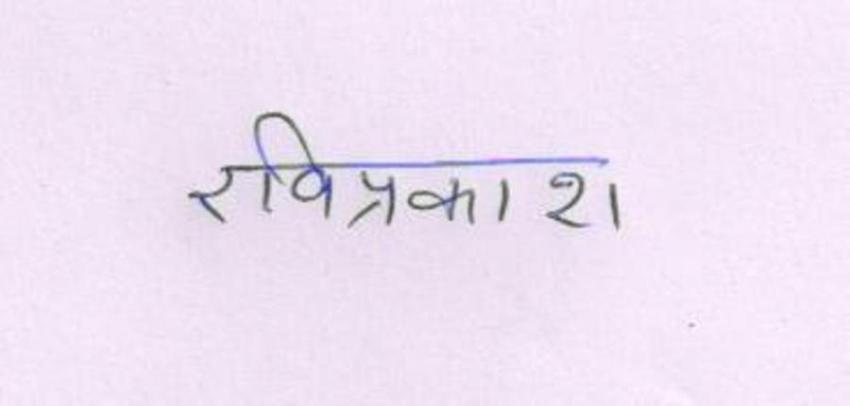 रविप्रकाश